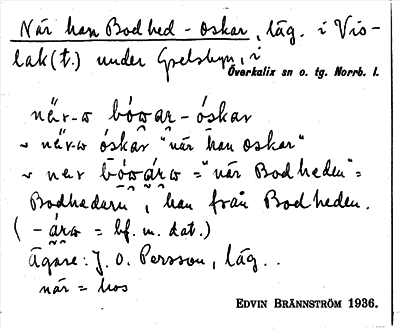 När han Bodhed-oskar, läg. i Vis-
lak(t.) under Grelsbyn, i
Överkalix sn o. tg. Norrb. l.
när-ɷ bówar-óskar
~ när-ɷ óskar "när han oskar"
~ ner bówárɷ = "när Bodheden" =
Bodhedarn, han från Bodheden.
(-árɷ = bf. m. dat.)
Ägare: J. O. Persson, läg. .
när = hos
EDVIN BRÄNNSTRÖM 1936.